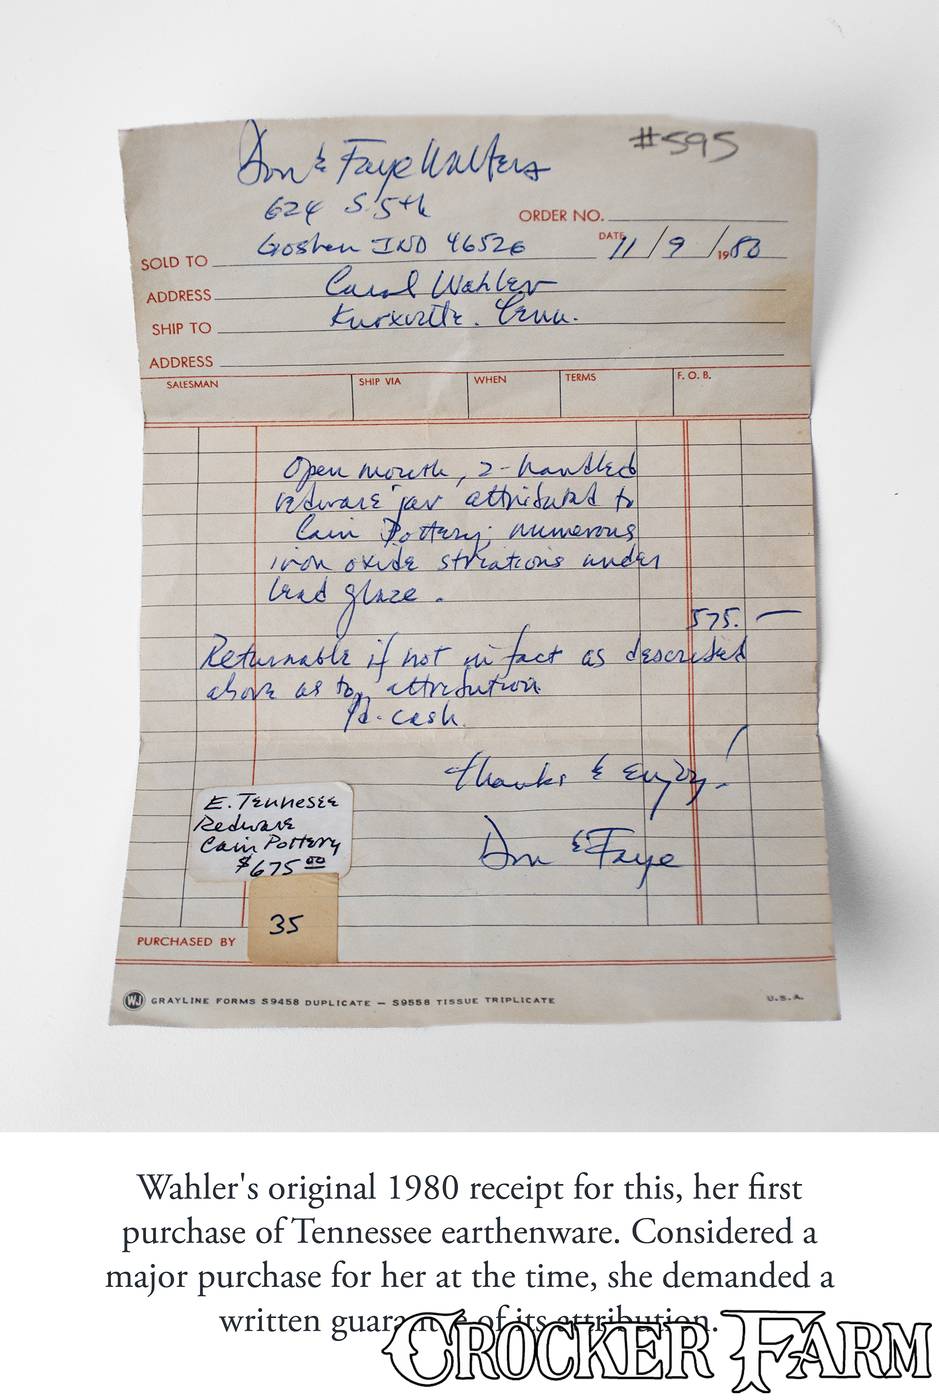 Don & Faye Walters
#595
624 S. 5th
ORDER NO.
Goshen IND 46526
DATE 11/9/1980
SOLD TO
ADDRESS
Carol Wahler
SHIP TO
Knoxville. Tenn.
ADDRESS
SALESMAN SHIP VIA WHEN TERMS F. O. B.
Open mouth, 2-handled
redware jar attributed to
Cain Pottery; numerous
iron oxide striations under
lead glaze.
575. —
Returnable if not in fact as described
above as to attribution
Pd. cash.
Thanks & Enjoy!
Don & Faye
E. Tennesee
Redware
Cain Pottery
$675.00
35
PURCHASED BY
WJ GRAYLINE FORMS S9458 DUPLICATE — S9558 TISSUE TRIPLICATE U.S.A.
Wahler's original 1980 receipt for this, her first
purchase of Tennessee earthenware. Considered a
major purchase for her at the time, she demanded a
written guarantee of its attribution.
CROCKER FARM